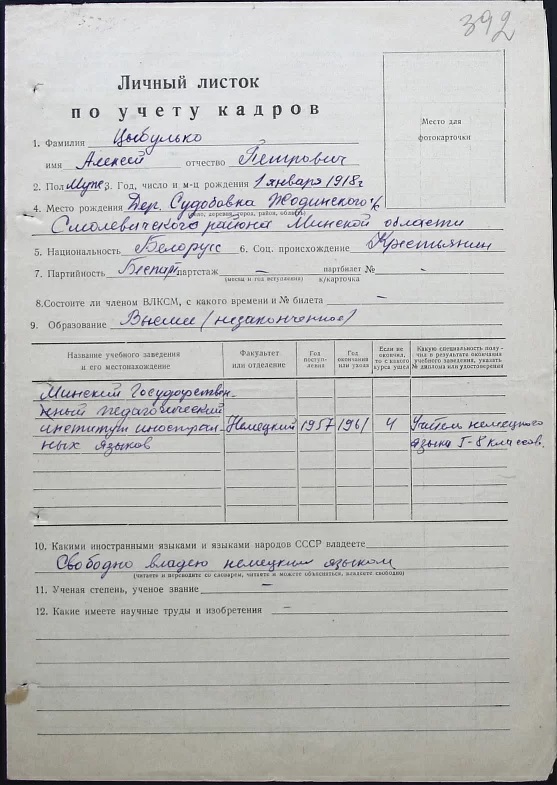 392
Личный листок
по учету кадров
Место для
фотокарточки
1. Фамилия Цыбулько
имя Алексей отчество Петрович
2. Пол Муж. 3. Год, число и м-ц рождения 1 января 1918 г
4. Место рождения Дер. Судобовка Жодинского
(село, деревня, город, район, область)
Смолевичского района Минской области
5. Национальность Белорусс 6. Соц. происхождение Крестьянин
7. Партийность Беспарт. партстаж – партбилет № -
(месяц и год вступления) к/карточка
8. Состоите ли членом ВЛКСМ, с какого времени и № билета –
9. Образование Высшее (незаконченное)
Название учебного заведения и его местонахождение
Факультет или отделение
Год поступления
Год окончания или ухода
Если не окончил, то с какого курса ушел
Какую специальность получил в результате окончания учебного заведения, указать № диплома или удостоверения
Минский Государствен-
ный педагогический
институт иностран- Немецкий 1957 1961 4 Учитель немецкого
ных языков языка 5-8 классов.
10. Какими иностранными языками и языками народов СССР владеете
Свободно владею немецким языком
(читаете и переводите со словарем, читаете и можете объясняться, владеете свободно)
11. Ученая степень, ученое звание –
12. Какие имеете научные труды и изобретения –